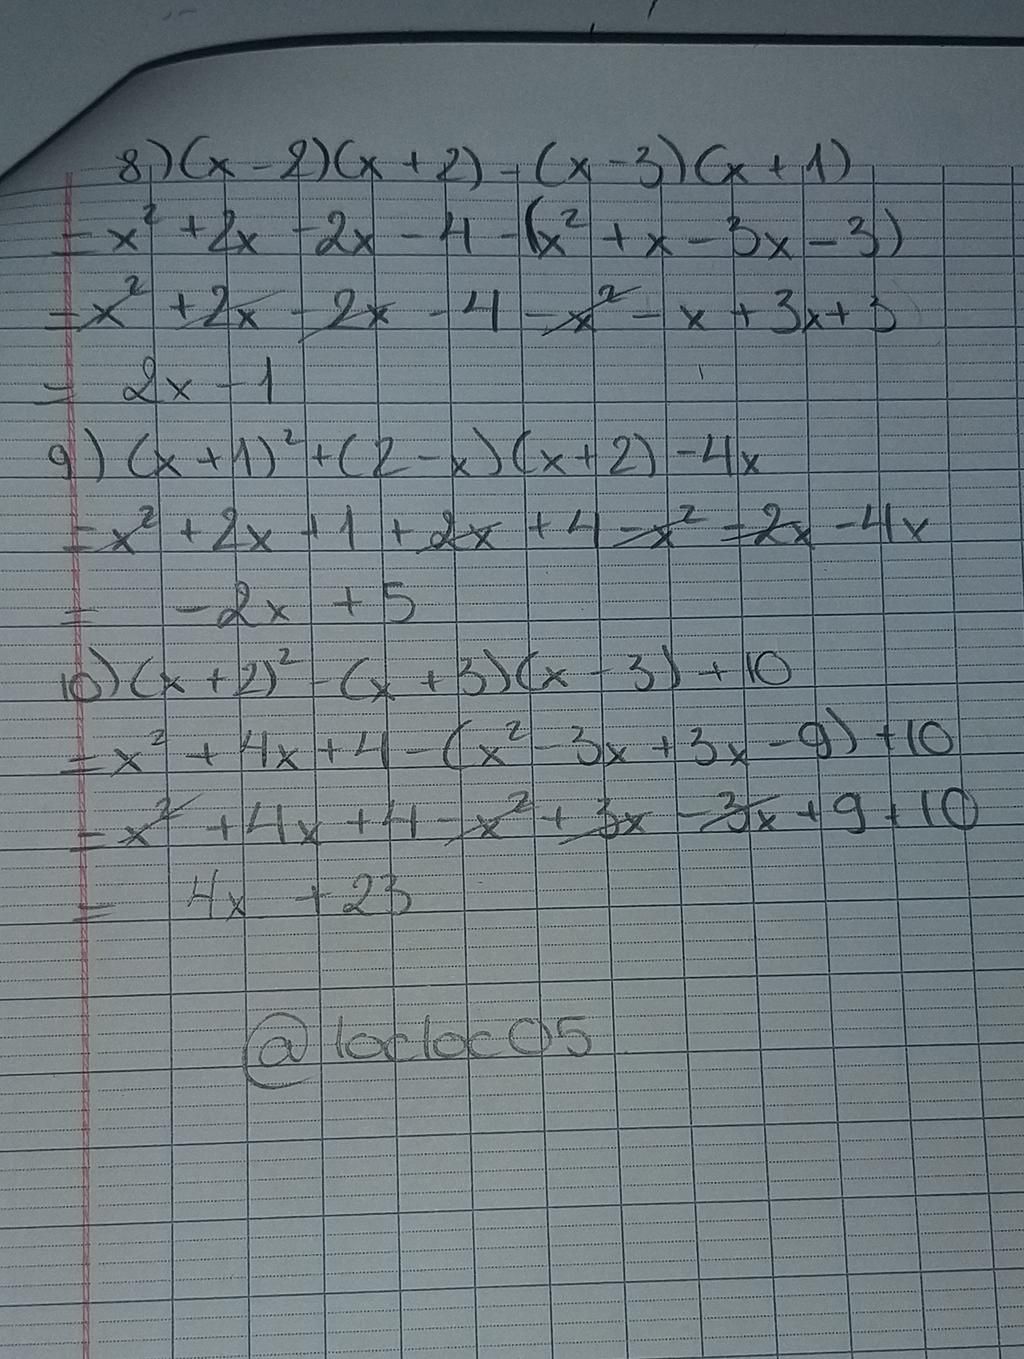 8) (x - 2)(x + 2) - (x - 3)(x + 1)
= x² + 2x - 2x - 4 - (x² + x - 3x - 3)
= x² + 2x - 2x - 4 - x² - x + 3x + 3
= 2x - 1
9) (x + 1)² + (2 - x)(x + 2) - 4x
= x² + 2x + 1 + 2x + 4 - x² - 2x - 4x
= -2x + 5
10) (x + 2)² - (x + 3)(x - 3) + 10
= x² + 4x + 4 - (x² - 3x + 3x - 9) + 10
= x² + 4x + 4 - x² + 3x - 3x + 9 + 10
= 4x + 23
@locloc05